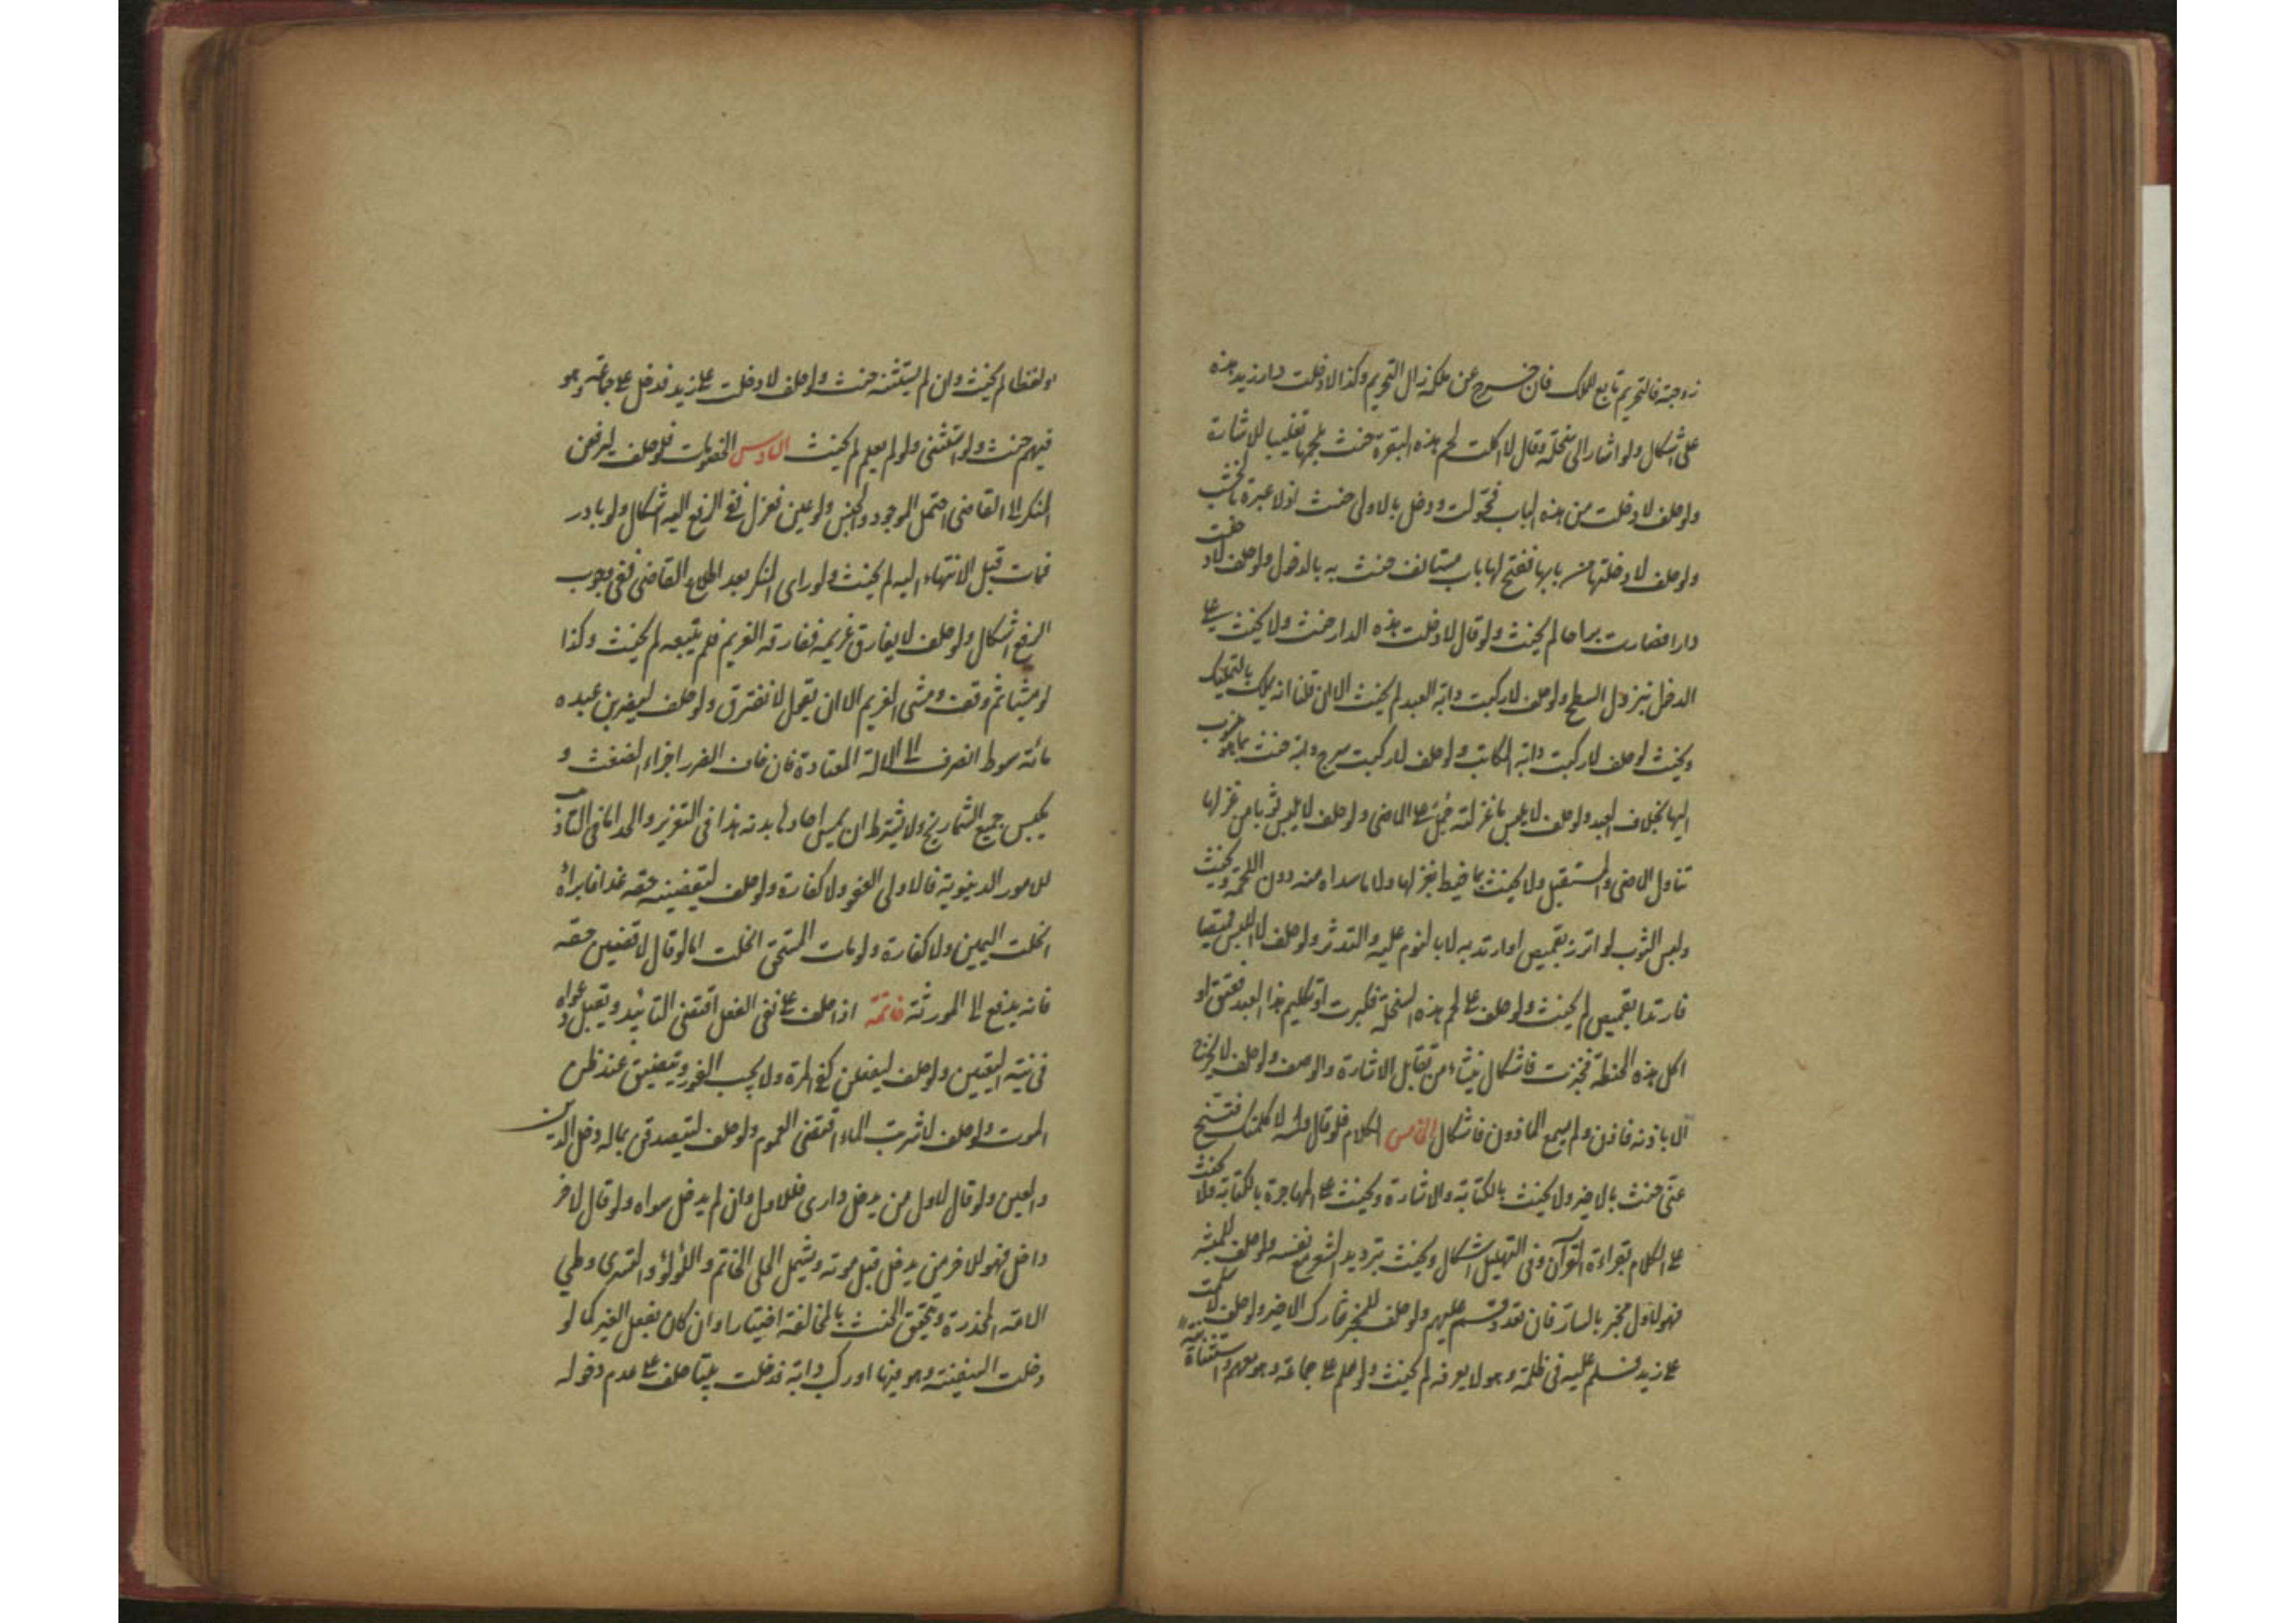 زوجته فالتحريم تابع للملك فان خرج عن ملكه زال التحريم وكذا لا دخلت دار زيد هذه
على اشكال ولو اشار الى سخلة وقال لا اكلت لحم هذه البقرة حنث بلحمها تغليبا للاشارة
ولو حلف لا دخلت من هذه الباب فحولت ودخل بالاولى حنث اذ لا عبرة بالخشب
ولو حلف لا دخلتها من بابها ففتح لها باب مستانف حنث به بالدخول ولو حلف لا دخلت
دارا فصارت براحا لم يحنث ولو قال لا دخلت هذه الدار حنث ولا يحنث على
الدخل بنزول السطح ولو حلف لا ركبت دابة العبد لم يحنث الا ان قلنا انه يملك بالتمليك
ويحنث لو حلف لا ركبت دابة المكاتب ولو حلف لا ركبت سرج دابة حنث بما هو منسوب
اليها بخلاف العبد ولو حلف لا يلبس ما غزلته حمل على الماضى ولو حلف لا يلبس ثوبا من غزلها
تناول الماضى والمستقبل ولا يحنث بما خيط بغزلها ولا ما سداه منه دون اللحمة ويحنث
ولبس الثوب لو اتزر بقميص او ارتد به لا بالنوم عليه والتدثر ولو حلف لا البس قميصا
فارتدا بقميص لم يحنث ولو حلف على لحم هذه السخلة فكبرت او تكليم هذا العبد فعتق او
اكل هذه الحنطة فخبزت فاشكال ينشاء من تقابل الاشارة والوصف ولو حلف لا يخرج
الا باذنه فاذن ولم يسمع الماذون فاشكال الخامس الكلام فلو قال والله لا كلمتك فتنح
عنى حنث بالاخير ولا يحنث بالكتابة والاشارة ويحنث على المهاجرة بالكتابة ولا يحنث
على الكلام بقراءة القرآن وفى التهليل اشكال ويحنث بترديد الشعر مع نفسه ولو حلف للمبشر
فهو لاول مخبر بالسار فان تعدد قسم عليهم ولو حلف للمخبر شارك الاخير ولو حلف لا سلمت
على زيد فسلم عليه فى ظلمة وهو لا يعرفه لم يحنث ولو سلم على جماعة وهو معهم واستثناه نية
او لفظا لم يحنث وان لم يستثنه حنث ولو حلف لا دخلت على زيد فدخل على جماعة وهو
فيهم حنث ولو استثنى ولو لم يعلم لم يحنث السادس الخصومات فلو حلف ليرفعن
المنكر الى القاضى احتمل الموجود والجنس ولو عين فعزل ففى الرفع اليه اشكال ولو بادر
فمات قبل الانتهاء اليه لم يحنث ولو راى المنكر بعد اطلاع القاضى ففى وجوب
الرفع اشكال ولو حلف لا يفارق غريمه ففارقه الغريم فلم يتبعه لم يحنث وكذا
لو مشيا ثم وقف ومشى الغريم الا ان يقول لا نفترق ولو حلف ليضربن عبده
مائة سوط انصرف الى الالة المعتادة فان خاف الضرر اجزاء الضغث و
يكبس جميع الشماريخ ولا يشترط ان يمس احادها بدنه هذا فى التعزير والحد اما فى التاديب
للامور الدينوية فالاولى العفو ولا كفارة ولو حلف ليقضينه حقه غدا فابراه
انحلت اليمين ولا كفارة ولو مات المستحق انحلت اما لو قال لاقضين حقه
فانه يدفع الى المورثة خاتمة اذا حلف على نفى الفعل اقتضى التابيد ويقبل دعواه
فى نية التعيين ولو حلف ليفعلن كفى المرة ولا يجب الفور ويتضيق عند ظن
الموت ولو حلف لا شربت الماء اقتضى العموم ولو حلف ليتصدقن بماله دخل الدين
والعين ولو قال لاول من يدخل دارى فللاول وان لم يدخل سواه ولو قال لاخر
داخل فهو للاخر من يدخل قبل موته ويشمل الحلى الخاتم واللؤلؤ والتسرى وطى
الامة المخدرة ويتحقق الحنث بالمخالفة اختيارا وان كان بفعل الغير كما لو
دخلت السفينة وهو فيها او ركب دابة فدخلت بيتا حلف على عدم دخوله